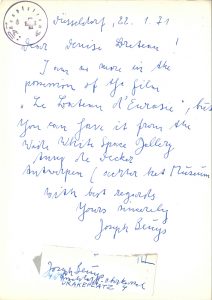 Düsseldorf, 22.1.71
Dear Denise Breteau!
I am no more in the
possession of the film
"Le Bateau d'Eurasie", but
You can have it from the
Wide White Space Gallery
Anny De Decker
Antwerpen (achter het Museum
With best regards
Yours sincerely
Joseph Beuys
Joseph Beuys
DRAKEPLATZ 4